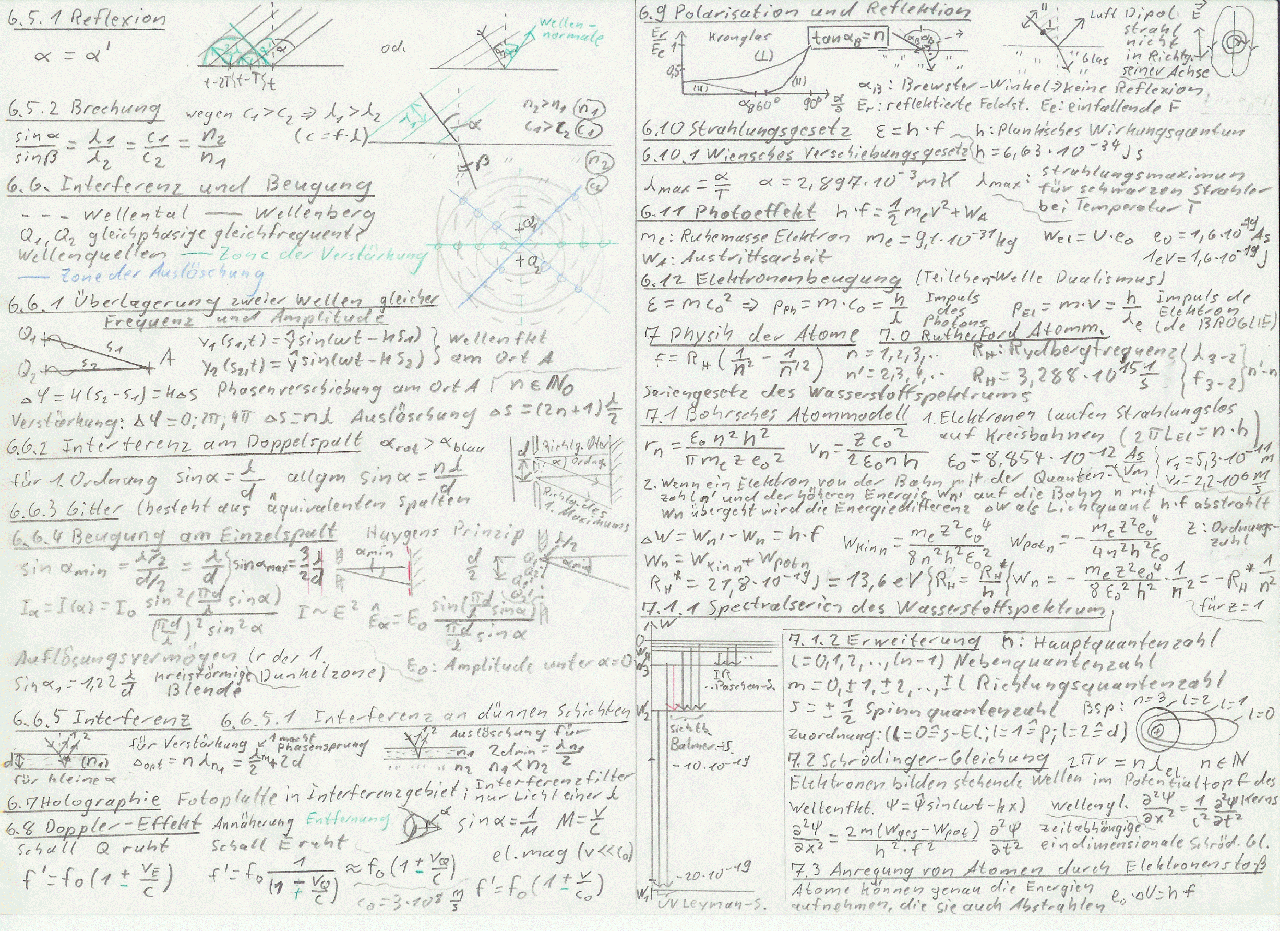 6.5.1 Reflexion
α = α'
t-2T t-T t
od.
Wellen-
normale
6.5.2 Brechung wegen c₁>c₂ ⇒ λ₁>λ₂
(c=f·λ)
sinα/sinβ = λ₁/λ₂ = c₁/c₂ = n₂/n₁
n₂>n₁ (n₁)
c₁>c₂ (c₁)
α
β
(n₂)
(c₂)
6.6. Interferenz und Beugung
--- Wellental — Wellenberg
Q₁, Q₂ gleichphasige gleichfrequente
Wellenquellen — Zone der Verstärkung
— Zone der Auslöschung
+Q₁
+Q₂
6.6.1 Überlagerung zweier Wellen gleicher
Frequenz und Amplitude
Q₁ s₁ A
Q₂ s₂
y₁(s₁,t) = ŷ sin(ωt - ks₁) } Wellenfkt
y₂(s₂,t) = ŷ sin(ωt - ks₂) } am Ort A
Δφ = k(s₂-s₁) = kΔs Phasenverschiebung am Ort A n∈ℕ₀
Verstärkung: Δφ = 0; 2π, 4π Δs = nλ Auslöschung Δs = (2n+1) λ/2
6.6.2 Interferenz am Doppelspalt α_rot > α_blau
für 1. Ordnung sinα = λ/d allgm sinα = nλ/d
6.6.3 Gitter (besteht aus äquivalenten Spalten
1. Maximums
6.6.4 Beugung am Einzelspalt Huygens Prinzip
sin α_min = (λ/2)/(d/2) = λ/d } sinα_max = 3/2 λ/d
α_min
d/2
λ/2
I_α = I(α) = I₀ sin²(πd/λ sinα) / ((πd/λ)² sin²α)
I ~ E² Ê_α = E₀ sin(πd/λ sinα) / (πd/λ sinα)
Auflösungsvermögen (r der 1.
Dunkelzone)
E₀: Amplitude unter α=0
sinα₁ = 1,22 λ/d kreisförmige
Blende
6.6.5 Interferenz 6.6.5.1 Interferenz an dünnen Schichten
für Verstärkung 1 macht
Phasensprung
Δopt = nλn₁ = λ/2 + 2d
für kleine α
d (n₁)
Auslöschung für
2dmin = λn₁/2
n₁ < n₂
n₁
n₂
Interferenzfilter
6.7 Holographie Fotoplatte in Interferenzgebiet; nur Licht einer λ
6.8 Doppler-Effekt Annäherung Entfernung
sinα = 1/M M = v/c
Schall Q ruht Schall E ruht el.mag (v<<c₀)
f' = f₀(1 ± v_E/c)
f' = f₀ 1/(1 ∓ v_Q/c) ≈ f₀(1 ± v_Q/c)
f' = f₀(1 ± v/c₀)
c₀ = 3·10⁸ m/s
6.9 Polarisation und Reflektion
Er/Ee Kronglas
1
0,5
(⊥)
(II)
tanα_B = n
α_B 60° 90° α
Luft
Glas
Dipol
strahlt
nicht
in Richtg.
seiner Achse
E
α_B: Brewster-Winkel ⇒ keine Reflexion
Er: reflektierte Feldst. Ee: einfallende F
6.10 Strahlungsgesetz ε = h·f h: Planksches Wirkungsquantum
6.10.1 Wiensches Verschiebungsgesetz h = 6,63·10⁻³⁴ Js
λmax = α/T α = 2,897·10⁻³ mK λmax: strahlungsmaximum
für schwarzen Strahler
bei Temperatur T
6.11 Photoeffekt h·f = 1/2 m_e v² + W_A
m_e: Ruhemasse Elektron m_e = 9,1·10⁻³¹ kg W_el = U·e₀ e₀ = 1,6·10⁻¹⁹ As
W_A: Austrittsarbeit 1eV = 1,6·10⁻¹⁹ J
6.12 Elektronenbeugung (Teilchen-Welle Dualismus)
ε = mc₀² ⇒ p_Ph = m·c₀ = h/λ Impuls
des
Photons
p_El = m·v = h/λ_e Impuls de
Elektron
(de BROGLIE)
7 Physik der Atome 7.0 Rutherford Atomm.
f = R_H (1/n² - 1/n'²) n = 1,2,3,..
n' = 2,3,4,..
R_H: Rydbergfrequenz
R_H = 3,288·10¹⁵ 1/s
{ λ₃₋₂ f₃₋₂ } n'-n
Seriengesetz des Wasserstoffspektrums
7.1 Bohrsches Atommodell 1. Elektronen laufen strahlungslos
auf Kreisbahnen (2πL_El = n·h)
r_n = ε₀n²h²/(πm_e z e₀²) v_n = z e₀²/(2ε₀nh) ε₀ = 8,854·10⁻¹² As/Vm
r₁ = 5,3·10⁻¹¹ m
v₁ = 2,2·10⁶ m/s
2. Wenn ein Elektron von der Bahn mit der Quanten-
zahl n' und der höheren Energie W_n' auf die Bahn n mit
W_n übergeht wird die Energiedifferenz ΔW als Lichtquant h·f abstrahlt
ΔW = W_n' - W_n = h·f W_kin n = m_e z² e₀⁴/(8n²h²ε₀²) W_pot n = -m_e z² e₀⁴/(4n²h²ε₀) z: Ordnungs-
zahl
W_n = W_kin n + W_pot n
R_H* = 21,8·10⁻¹⁹ J = 13,6 eV } R_H = R_H*/h } W_n = -m_e z² e₀⁴/(8ε₀²h²)·1/n² = -R_H* 1/n²
für z=1
7.1.1 Spectralserien des Wasserstoffspektrum
W
0
W₃
W₂
W₁
IR
Paschen-S.
sichtb.
Balmer-S.
-10·10⁻¹⁹
-20·10⁻¹⁹
UV Leyman-S.
7.1.2 Erweiterung n: Hauptquantenzahl
l = 0,1,2,..,(n-1) Nebenquantenzahl
m = 0,±1,±2,..,±l Richtungsquantenzahl
s = ± 1/2 Spinnquantenzahl Bsp: n=3 l=2 l=1
l=0
zuordnung: (l=0≙s-El; l=1≙p; l=2≙d)
7.2 Schrödinger-Gleichung 2πr = nλ_el n∈ℕ
Elektronen bilden stehende Wellen im Potentialtopf des
Kerns
Wellenfkt. Ψ = Ψ̂ sin(ωt-kx) Wellengl. ∂²Ψ/∂x² = 1/c² ∂²Ψ/∂t²
∂²Ψ/∂x² = 2m(Wges-Wpot)/(h²·f²) ∂²Ψ/∂t² zeitabhängige
eindimensionale Schröd. Gl.
7.3 Anregung von Atomen durch Elektronenstoß
Atome können genau die Energien
aufnehmen, die sie auch Abstrahlen e₀·ΔU = h·f